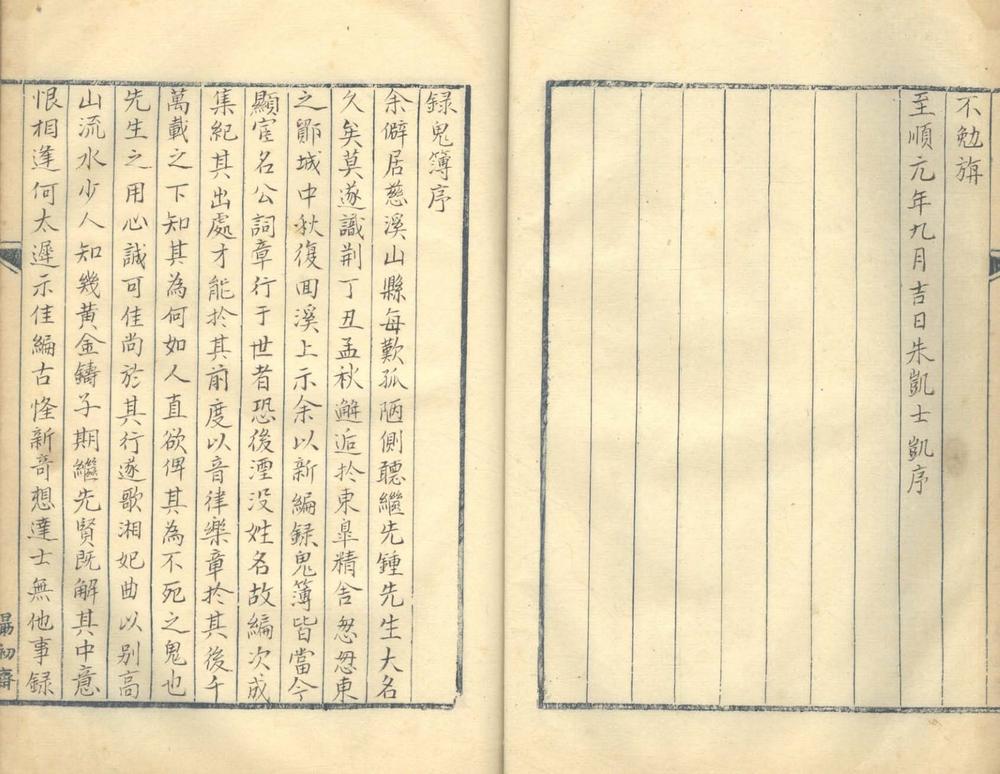 不勉旃
至順元年九月吉日朱凱士凱序
録鬼簿序
余僻居慈溪山縣每歎孤陋側聽繼先鍾先生大名
久矣莫遂識荆丁丑孟秋邂逅於東臯精舍怱怱東
之鄮城中秋復回溪上示余以新編録鬼簿皆當今
顯宦名公詞章行于世者恐後湮没姓名故編次成
集紀其出處才能於其前度以音律樂章於其後千
萬載之下知其為何如人直欲俾其為不死之鬼也
先生之用心誠可佳尚於其行遂歌湘妃曲以别高
山流水少人知幾黄金鑄子期繼先賢既解其中意
恨相逢何太遲示佳編古怪新奇想達士無他事録